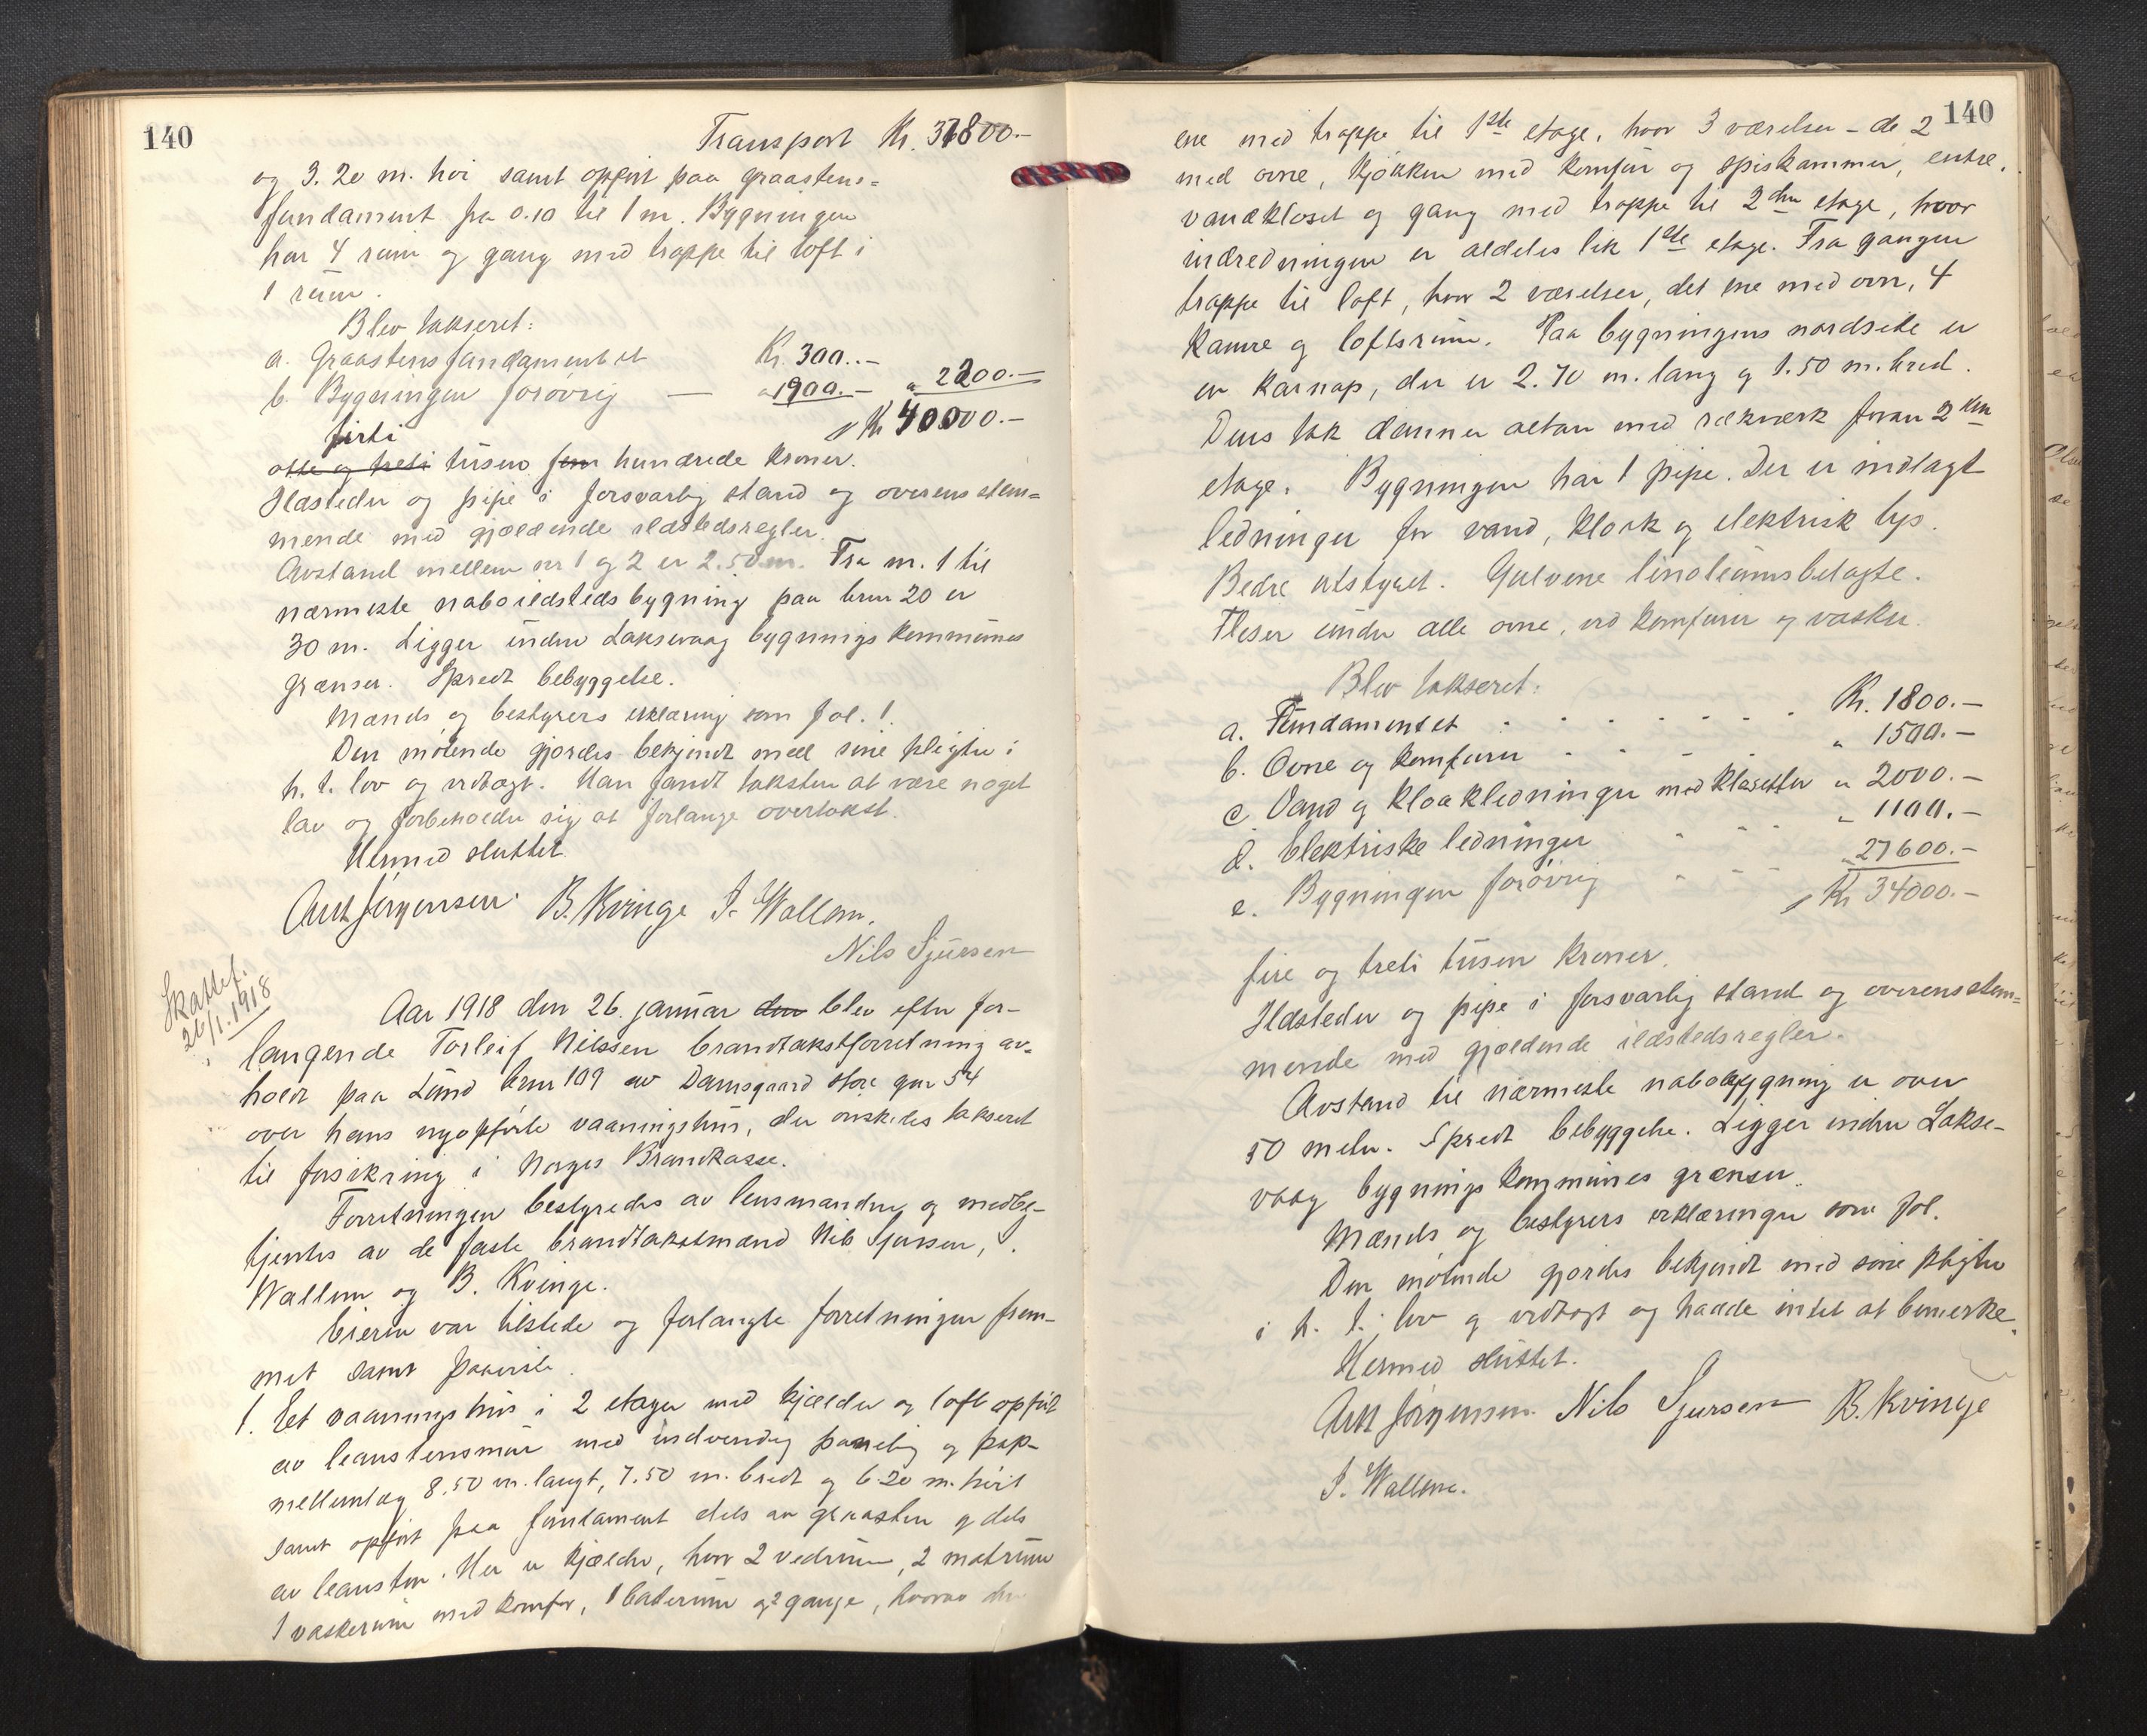 140
Transport Kr. 37800.-
og 3.20 m. høi samt opført paa graastens=
fundament fra 0.10 til 1 m. Bygningen
har 4 rum og gang med trappe til loft i
1 rum.
Blev takseret:
a. Graastensfundamentet Kr. 300.-
b. Bygningen forøvrig — " 1900.- " 2200.-
Kr 40000.-
firti
otte og treti tusen fem hundrede kroner.
Ildsteder og pipe i forsvarlig stand og overensstem=
mende med gjældende ildstedsregler.
Avstand mellem nr 1 og 2 er 2.50 m. Fra nr. 1 til
nærmeste naboildstedsbygning paa brnr 20 er
30 m. Ligger under Laksevaag bygningskommunes
grænser. Spredt bebyggelse.
Mænds og bestyrers erklæring som fol. 1.
Den møtende gjordes bekjendt med sine pligter i
h. t. lov og vedtægt. Han fandt taksten at være noget
lav og forbeholder sig at forlange overtakst.
Hermed sluttet.
Ant Jørgensen. B. Kvinge J. Wallem.
Nils Sjursen
Skattef.
26/1.1918
Aar 1918 den 26. januar den blev efter for-
langende Torleif Nilssen brandtakstforretning av-
holdt paa Lund brnr 109 av Damsgaard store gnr 54
over hans nyopførte vaaningshus, der ønskedes takseret
til forsikring i Norges Brandkasse.
Forretningen bestyredes av lensmanden og medbe-
tjentes av de faste brandtakstmænd Nils Sjursen, J.
Wallem og B. Kvinge.
Eieren var tilstede og forlangte forretningen frem-
met samt paaviste
1. Eet vaaningshus i 2 etager med kjælder og loft opført
av leanstensmur med indvendig paneling og pap-
mellemlag 8.50 m. langt, 7.50 m. bredt og 6.20 m. høit
samt opført paa fundament dels av graasten og dels
av leansten. Her er kjælder, hvor 2 vedrum, 2 matrum
1 vaskerum med komfyr, 1 baderum og 2 gange, hvorav den
140
ene med trappe til 1ste etage, hvor 3 værelser - de 2
med ovne, kjøkken med komfyr og spiskammer, entre,
vandkloset og gang med trappe til 2den etage, hvor
indredningen er aldeles lik 1ste etage. Fra gangen
trappe til loft, hvor 2 værelser, det ene med ovn, 4
kamre og loftsrum. Paa bygningens nordside er
en karnap, der er 2.70 m. lang og 1.50 m. bred.
Dens tak danner altan med rækværk foran 2den
etage. Bygningen har 1 pipe. Der er indlagt
ledninger for vand, kloak og elektrisk lys.
Bedre utstyret. Gulvene linoleumsbelagte.
Fliser under alle ovne, ved komfyrer og vasker.
Blev takseret:
a. Fundamentet . . . . . . . Kr. 1800.-
b. Ovne og komfyrer . . . . " 1500.-
c. Vand og kloakledninger med klosetter " 2000.-
d. Elektriske ledninger " 1100.-
e. Bygningen forøvrig " 27600.-
Kr 34000.-
fire og treti tusen kroner.
Ildsteder og pipe i forsvarlig stand og overensstem=
mende med gjældende ildstedsregler.
Avstand til nærmeste nabobygning er over
50 meter. Spredt bebyggelse. Ligger under Lakse-
vaag bygningskommunes grænser.
Mænds og bestyrers erklæringer som fol.
Den møtende gjordes bekjendt med sine pligter
i h. t. lov og vedtægt og hadde intet at bemerke.
Hermed sluttet.
Ant Jørgensen. Nils Sjursen B. Kvinge
J. Wallem.